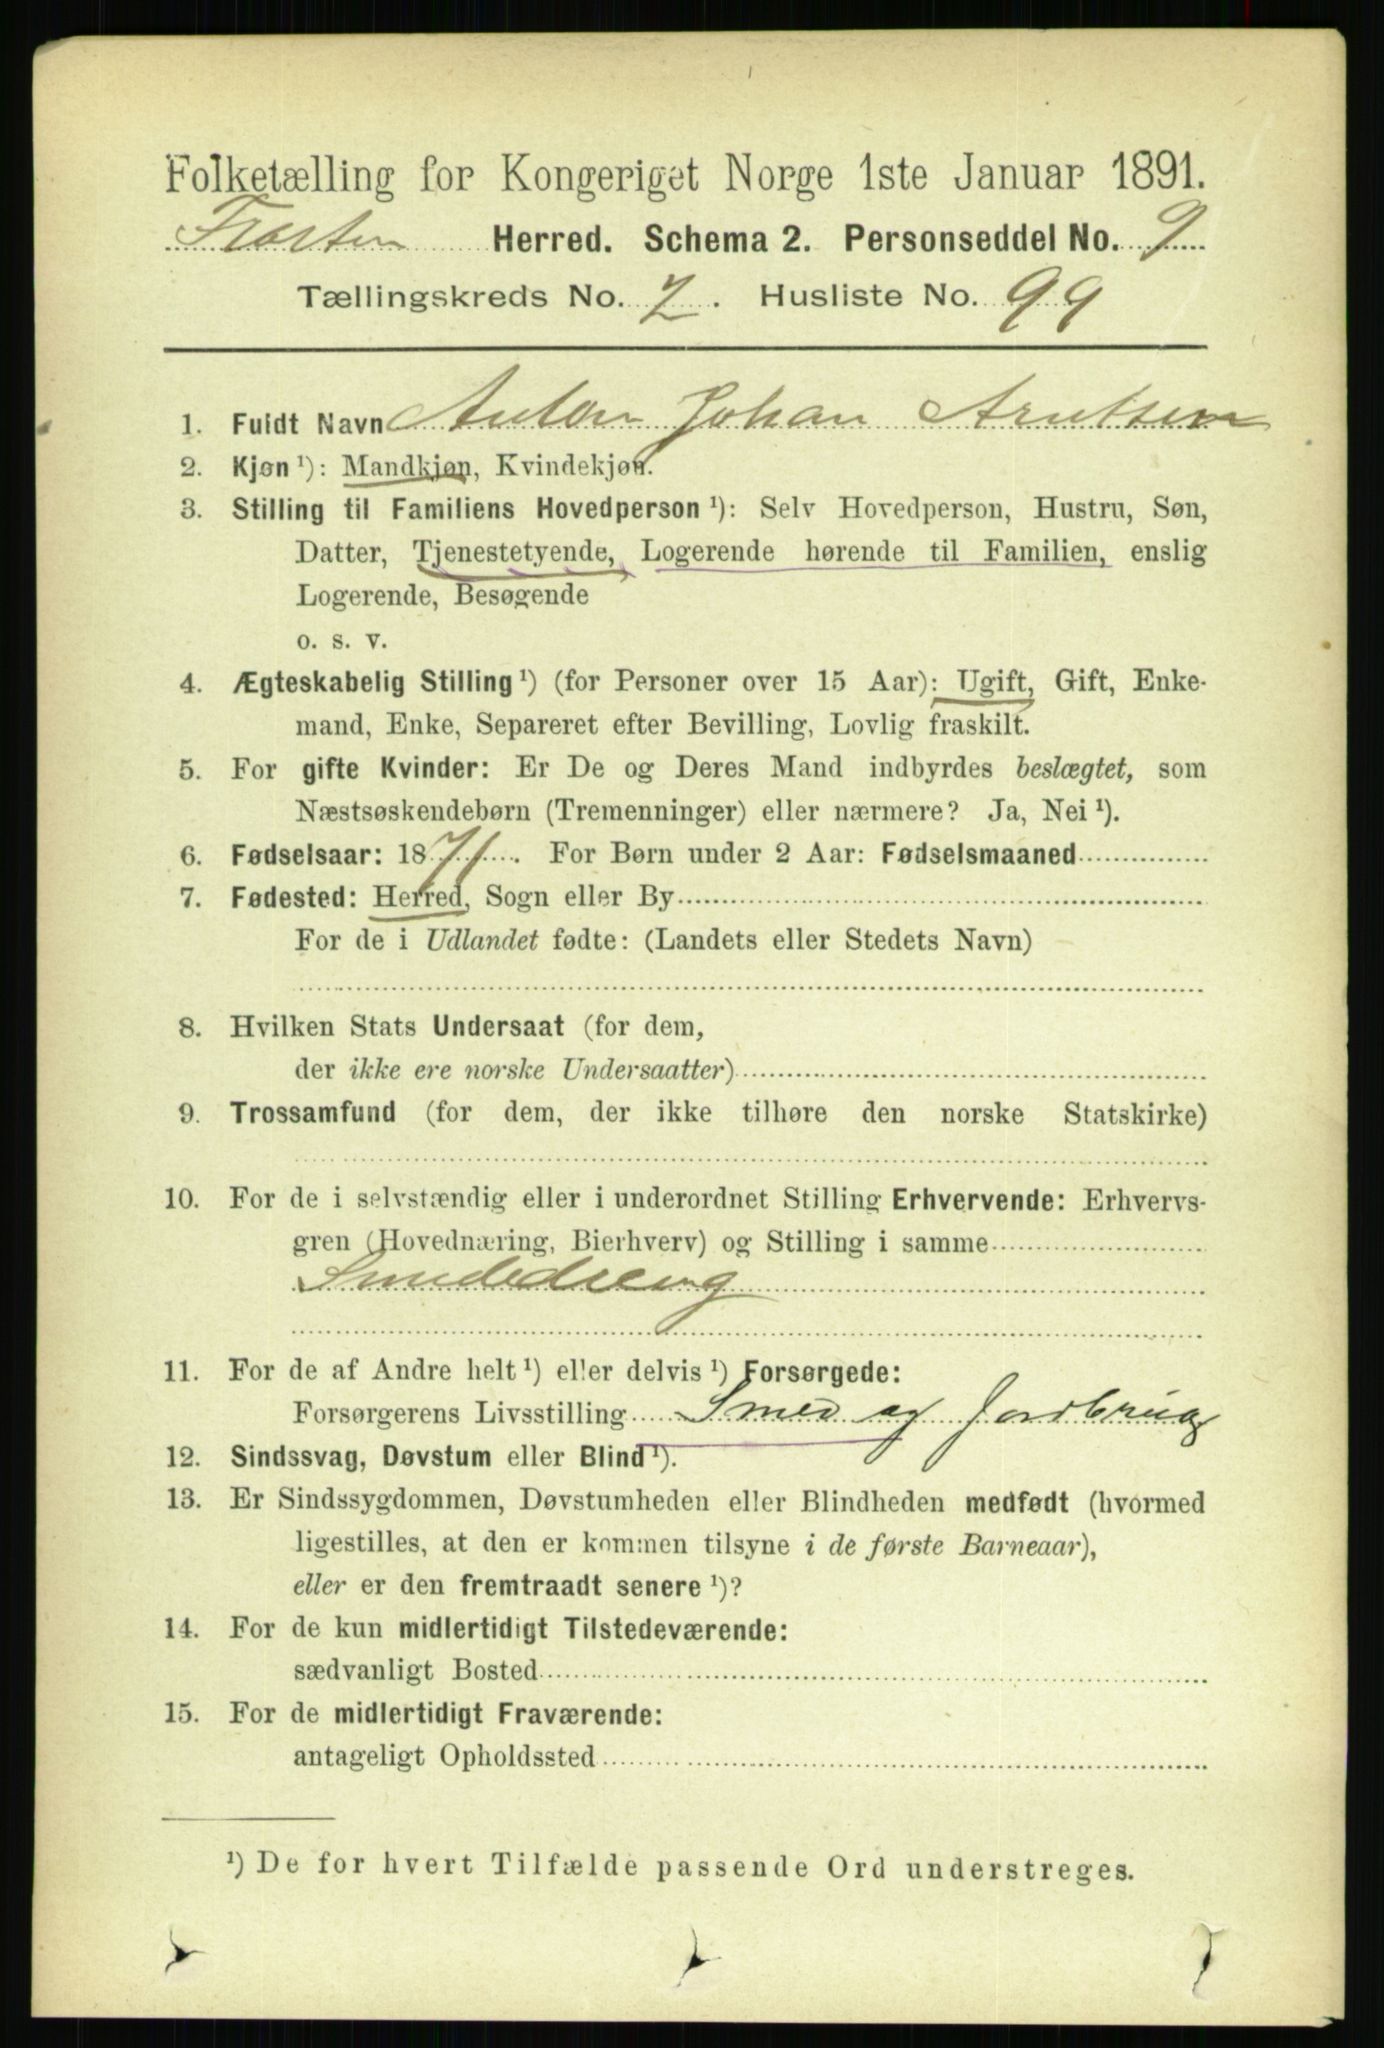 Folketælling for Kongeriget Norge 1ste Januar 1891.
Frosten Herred. Schema 2. Personseddel No. 9
Tællingskreds No. 7. Husliste No. 99
1. Fuldt Navn Anton Johan Arntsen
2. Kjøn ¹): Mandkjøn, Kvindekjøn.
3. Stilling til Familiens Hovedperson ¹): Selv Hovedperson, Hustru, Søn,
Datter, Tjenestetyende, Logerende hørende til Familien, enslig
Logerende, Besøgende
o. s. v.
4. Ægteskabelig Stilling ¹) (for Personer over 15 Aar): Ugift, Gift, Enke-
mand, Enke, Separeret efter Bevilling, Lovlig fraskilt.
5. For gifte Kvinder: Er De og Deres Mand indbyrdes beslægtet, som
Næstsøskendebørn (Tremenninger) eller nærmere? Ja, Nei ¹).
6. Fødselsaar: 1871. For Børn under 2 Aar: Fødselsmaaned
7. Fødested: Herred, Sogn eller By
For de i Udlandet fødte: (Landets eller Stedets Navn)
8. Hvilken Stats Undersaat (for dem,
der ikke ere norske Undersaatter)
9. Trossamfund (for dem, der ikke tilhøre den norske Statskirke)
10. For de i selvstændig eller i underordnet Stilling Erhvervende: Erhvervs-
gren (Hovednæring, Bierhverv) og Stilling i samme
Smededreng
11. For de af Andre helt ¹) eller delvis ¹) Forsørgede:
Forsørgerens Livsstilling Smed og Jordbrug
12. Sindssvag, Døvstum eller Blind ¹).
13. Er Sindssygdommen, Døvstumheden eller Blindheden medfødt (hvormed
ligestilles, at den er kommen tilsyne i de første Barneaar),
eller er den fremtraadt senere ¹)?
14. For de kun midlertidigt Tilstedeværende:
sædvanligt Bosted
15. For de midlertidigt Fraværende:
antageligt Opholdssted
¹) De for hvert Tilfælde passende Ord understreges.